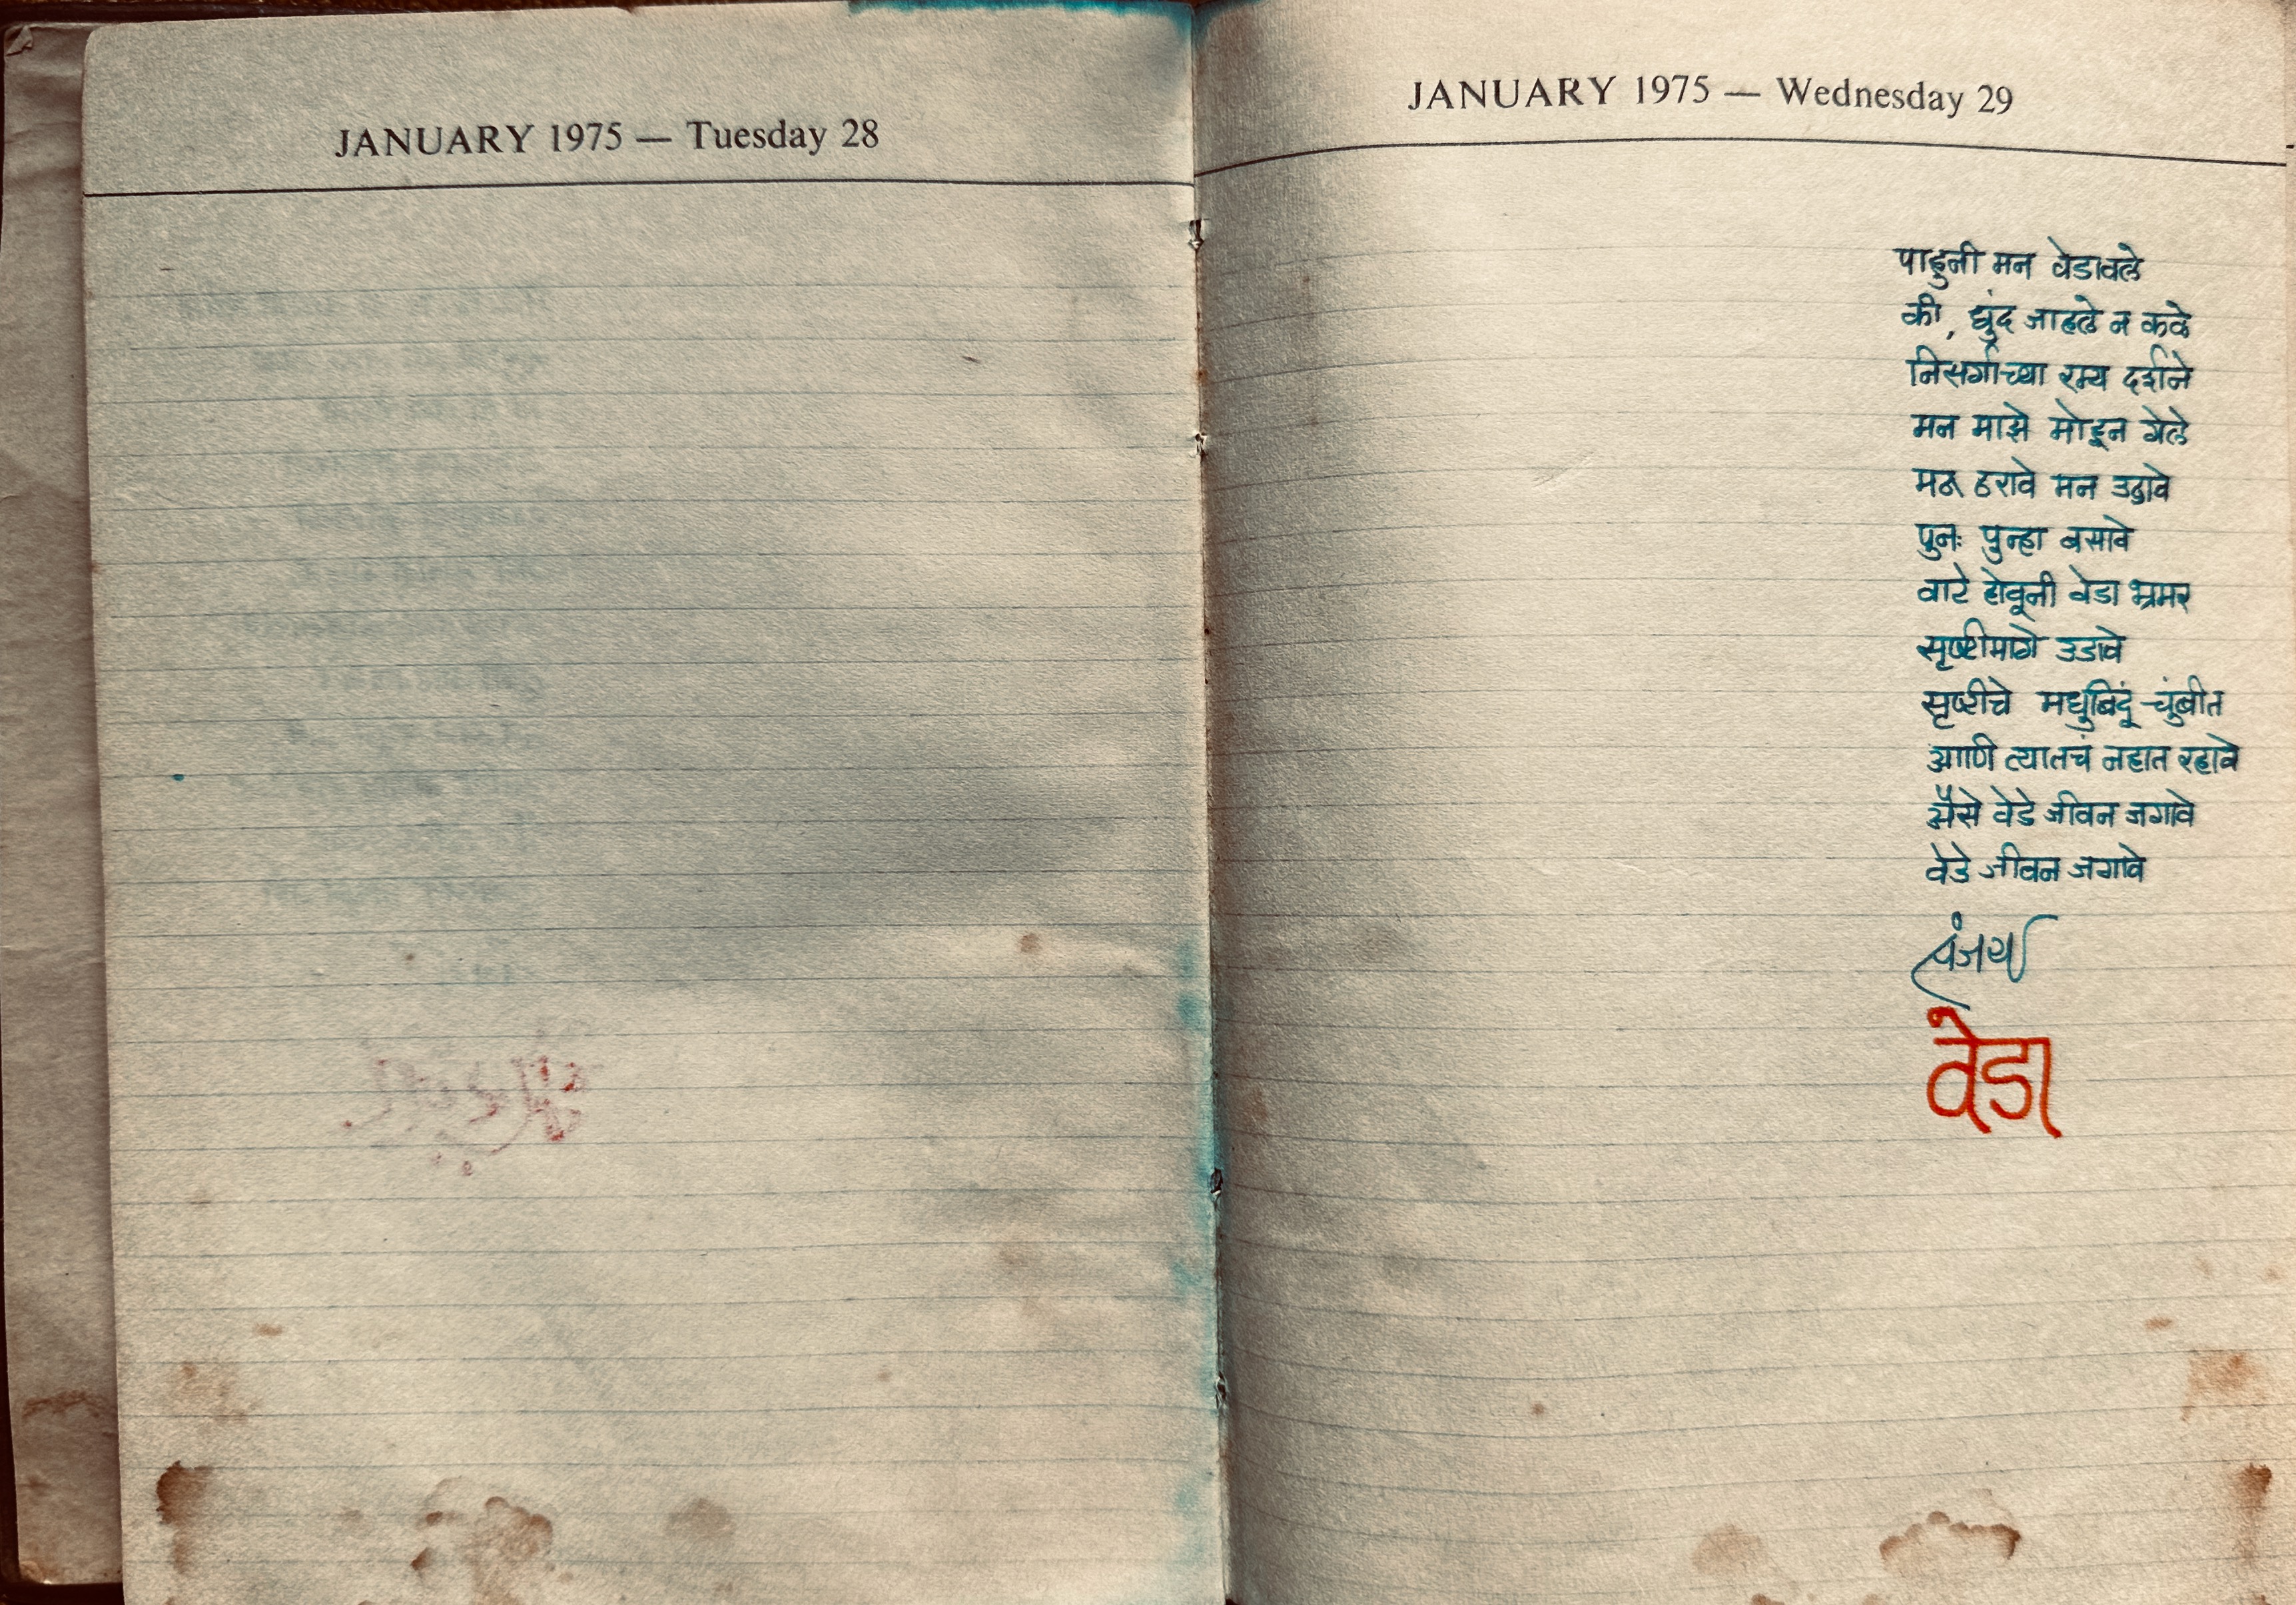 JANUARY 1975 — Tuesday 28
JANUARY 1975 — Wednesday 29
पाहुनी मन वेडावले
की, धुंद जाहले न कळे
निसर्गाच्या रम्य दर्शने
मन माझे मोहून गेले
मन ठरावे मन उढावे
पुनः पुन्हा बसावे
वाटे होवूनी वेडा भ्रमर
सृष्टीमागे उडावे
सृष्टीचे मधुबिंदू चुंबीत
आणि त्यातचं नहात रहावे
असे वेडे जीवन जगावे
वेडे जीवन जगावे
संजय
वेडा